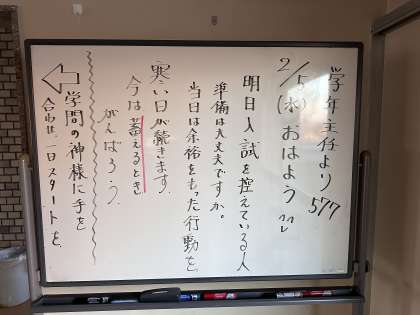 学年主任より 577
2/5(水) おはよう
明日入試を控えている人
準備は大丈夫ですか。
当日は余裕をもった行動を
寒い日が続きます。
今は蓄えるとき
がんばろう。
学問の神様に手を
合わせ、一日スタートを